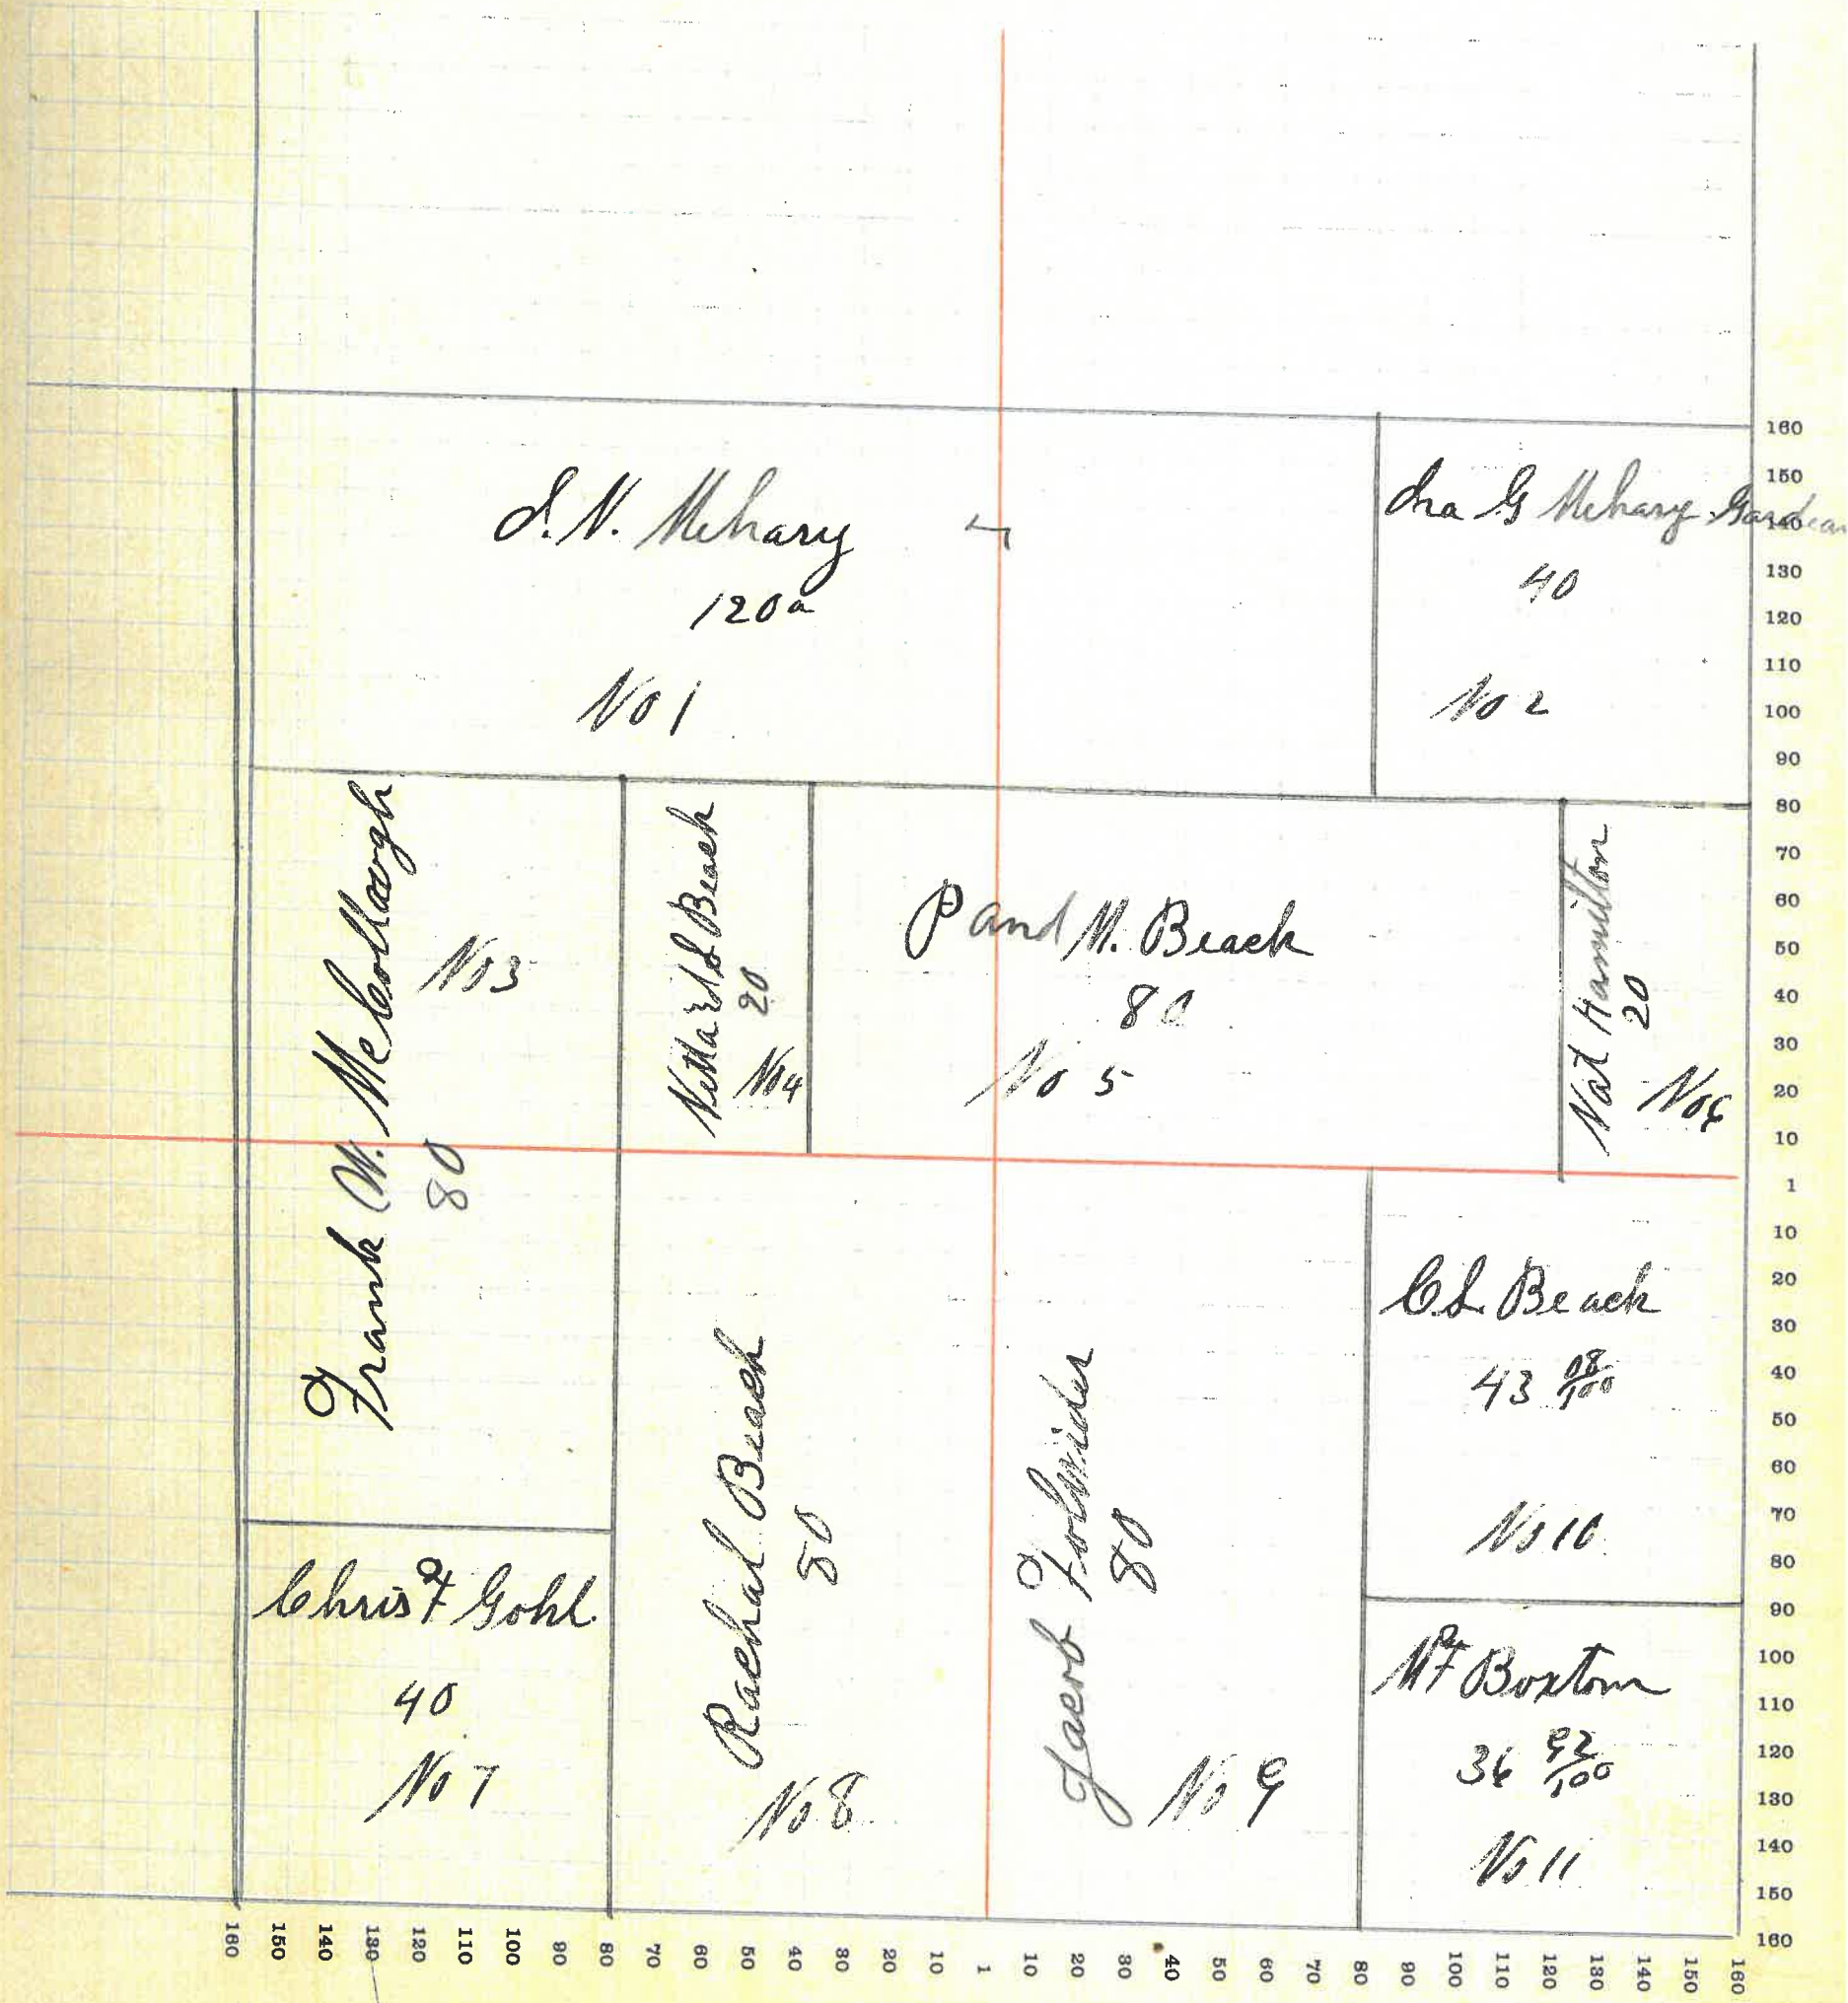 I. N. Mehary
120 a
No 1
Ira G Mehary Gardean
40
No 2
Frank W. McCollaugh
80
No 3
Beach
20
No 4
P and M. Beach
80
No 5
Nat Hamilton
20
No 6
Chris F Gohl
40
No 7
Rachal Beach
80
No 8
Jacob Folsider
80
No 9
C. L. Beach
43 08/100
No 10
M F Boxtom
36 92/100
No 11
160
150
140
130
120
110
100
90
80
70
60
50
40
30
20
10
1
10
20
30
40
50
60
70
80
90
100
110
120
130
140
150
160
160 150 140 130 120 110 100 90 80 70 60 50 40 30 20 10 1 10 20 30 40 50 60 70 80 90 100 110 120 130 140 150 160